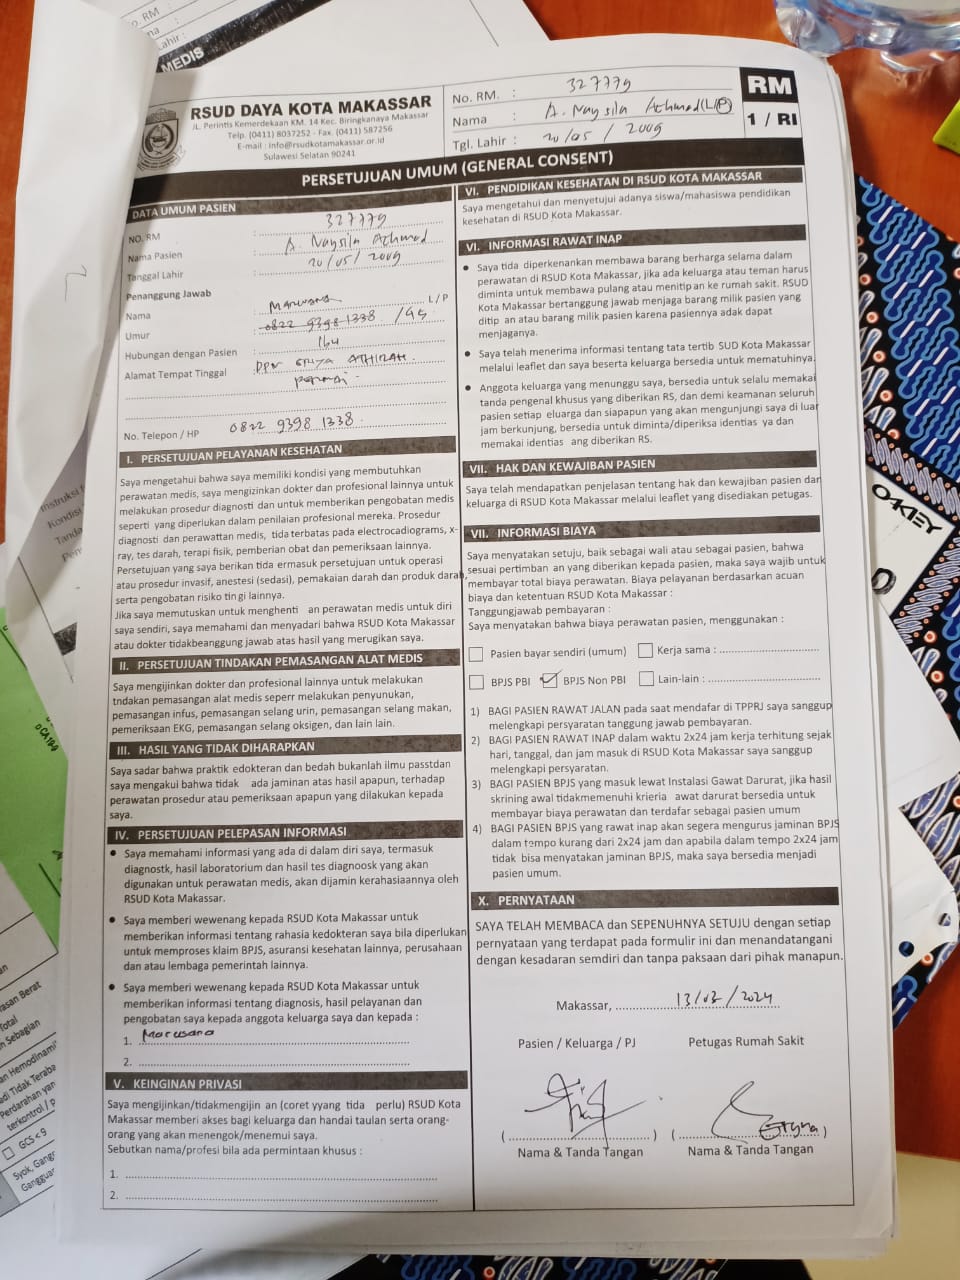 o. RM :
na :
Lahir :
MEDIS
RSUD DAYA KOTA MAKASSAR
JL. Perintis Kemerdekaan KM. 14 Kec. Biringkanaya Makassar
Telp. (0411) 8037252 - Fax. (0411) 587256
E-mail : info@rsudkotamakassar.or.id
Sulawesi Selatan 90241
No. RM. : 327779
Nama : A. Naysila Achmad (L/P)
Tgl. Lahir : 20/05/2009
RM
1 / RI
PERSETUJUAN UMUM (GENERAL CONSENT)
DATA UMUM PASIEN
NO. RM : 327779
Nama Pasien : A. Naysila Achmad
Tanggal Lahir : 20/05/2009
Penanggung Jawab
Nama : Marwana L/P
Umur : 0822 9398 1338 /45
Hubungan dengan Pasien : Ibu
Alamat Tempat Tinggal : ATHIRAH
Permai
No. Telepon / HP 0822 9398 1338
I. PERSETUJUAN PELAYANAN KESEHATAN
Saya mengetahui bahwa saya memiliki kondisi yang membutuhkan
perawatan medis, saya mengizinkan dokter dan profesional lainnya untuk
melakukan prosedur diagnosti dan untuk memberikan pengobatan medis
seperti yang diperlukan dalam penilaian profesional mereka. Prosedur
diagnosti dan perawattan medis, tida terbatas pada electrocadiograms, x-
ray, tes darah, terapi fisik, pemberian obat dan pemeriksaan lainnya.
Persetujuan yang saya berikan tida ermasuk persetujuan untuk operasi
atau prosedur invasif, anestesi (sedasi), pemakaian darah dan produk darah,
serta pengobatan risiko tin gi lainnya.
Jika saya memutuskan untuk menghenti an perawatan medis untuk diri
saya sendiri, saya memahami dan menyadari bahwa RSUD Kota Makassar
atau dokter tidakbeanggung jawab atas hasil yang merugikan saya.
II. PERSETUJUAN TINDAKAN PEMASANGAN ALAT MEDIS
Saya mengijinkan dokter dan profesional lainnya untuk melakukan
tndakan pemasangan alat medis seperr melakukan penyunukan,
pemasangan infus, pemasangan selang urin, pemasangan selang makan,
pemeriksaan EKG, pemasangan selang oksigen, dan lain lain.
III. HASIL YANG TIDAK DIHARAPKAN
Saya sadar bahwa praktik edokteran dan bedah bukanlah ilmu passtdan
saya mengakui bahwa tidak ada jaminan atas hasil apapun, terhadap
perawatan prosedur atau pemeriksaan apapun yang dilakukan kepada
saya.
IV. PERSETUJUAN PELEPASAN INFORMASI
• Saya memahami informasi yang ada di dalam diri saya, termasuk
diagnostk, hasil laboratorium dan hasil tes diagnoosk yang akan
digunakan untuk perawatan medis, akan dijamin kerahasiaannya oleh
RSUD Kota Makassar.
• Saya memberi wewenang kepada RSUD Kota Makassar untuk
memberikan informasi tentang rahasia kedokteran saya bila diperlukan
untuk memproses klaim BPJS, asuransi kesehatan lainnya, perusahaan
dan atau lembaga pemerintah lainnya.
• Saya memberi wewenang kepada RSUD Kota Makassar untuk
memberikan informasi tentang diagnosis, hasil pelayanan dan
pengobatan saya kepada anggota keluarga saya dan kepada :
1. Marwana
2.
V. KEINGINAN PRIVASI
Saya mengijinkan/tidakmengijin an (coret yyang tida perlu) RSUD Kota
Makassar memberi akses bagi keluarga dan handai taulan serta orang-
orang yang akan menengok/menemui saya.
Sebutkan nama/profesi bila ada permintaan khusus :
1.
2.
VI. PENDIDIKAN KESEHATAN DI RSUD KOTA MAKASSAR
Saya mengetahui dan menyetujui adanya siswa/mahasiswa pendidikan
kesehatan di RSUD Kota Makassar.
VI. INFORMASI RAWAT INAP
• Saya tida diperkenankan membawa barang berharga selama dalam
perawatan di RSUD Kota Makassar, jika ada keluarga atau teman harus
diminta untuk membawa pulang atau menitip an ke rumah sakit. RSUD
Kota Makassar bertanggung jawab menjaga barang milik pasien yang
ditip an atau barang milik pasien karena pasiennya adak dapat
menjaganya.
• Saya telah menerima informasi tentang tata tertib SUD Kota Makassar
melalui leaflet dan saya beserta keluarga bersedia untuk mematuhinya.
• Anggota keluarga yang menunggu saya, bersedia untuk selalu memakai
tanda pengenal khusus yang diberikan RS, dan demi keamanan seluruh
pasien setiap eluarga dan siapapun yang akan mengunjungi saya di luar
jam berkunjung, bersedia untuk diminta/diperiksa identias ya dan
memakai identias ang diberikan RS.
VII. HAK DAN KEWAJIBAN PASIEN
Saya telah mendapatkan penjelasan tentang hak dan kewajiban pasien dan
keluarga di RSUD Kota Makassar melalui leaflet yang disediakan petugas.
VII. INFORMASI BIAYA
Saya menyatakan setuju, baik sebagai wali atau sebagai pasien, bahwa
sesuai pertimban an yang diberikan kepada pasien, maka saya wajib untuk
membayar total biaya perawatan. Biaya pelayanan berdasarkan acuan
biaya dan ketentuan RSUD Kota Makassar :
Tanggungjawab pembayaran :
Saya menyatakan bahwa biaya perawatan pasien, menggunakan :
Pasien bayar sendiri (umum) Kerja sama :
BPJS PBI BPJS Non PBI Lain-lain :
1) BAGI PASIEN RAWAT JALAN pada saat mendafar di TPPRJ saya sanggup
melengkapi persyaratan tanggung jawab pembayaran.
2) BAGI PASIEN RAWAT INAP dalam waktu 2x24 jam kerja terhitung sejak
hari, tanggal, dan jam masuk di RSUD Kota Makassar saya sanggup
melengkapi persyaratan.
3) BAGI PASIEN BPJS yang masuk lewat Instalasi Gawat Darurat, jika hasil
skrining awal tidakmemenuhi krieria awat darurat bersedia untuk
membayar biaya perawatan dan terdafar sebagai pasien umum
4) BAGI PASIEN BPJS yang rawat inap akan segera mengurus jaminan BPJS
dalam tempo kurang dari 2x24 jam dan apabila dalam tempo 2x24 jam
tidak bisa menyatakan jaminan BPJS, maka saya bersedia menjadi
pasien umum.
X. PERNYATAAN
SAYA TELAH MEMBACA dan SEPENUHNYA SETUJU dengan setiap
pernyataan yang terdapat pada formulir ini dan menandatangani
dengan kesadaran semdiri dan tanpa paksaan dari pihak manapun.
Makassar, 13/03/2024
Pasien / Keluarga / PJ Petugas Rumah Sakit
Nama & Tanda Tangan Nama & Tanda Tangan
OAKLEY
GCS < 9